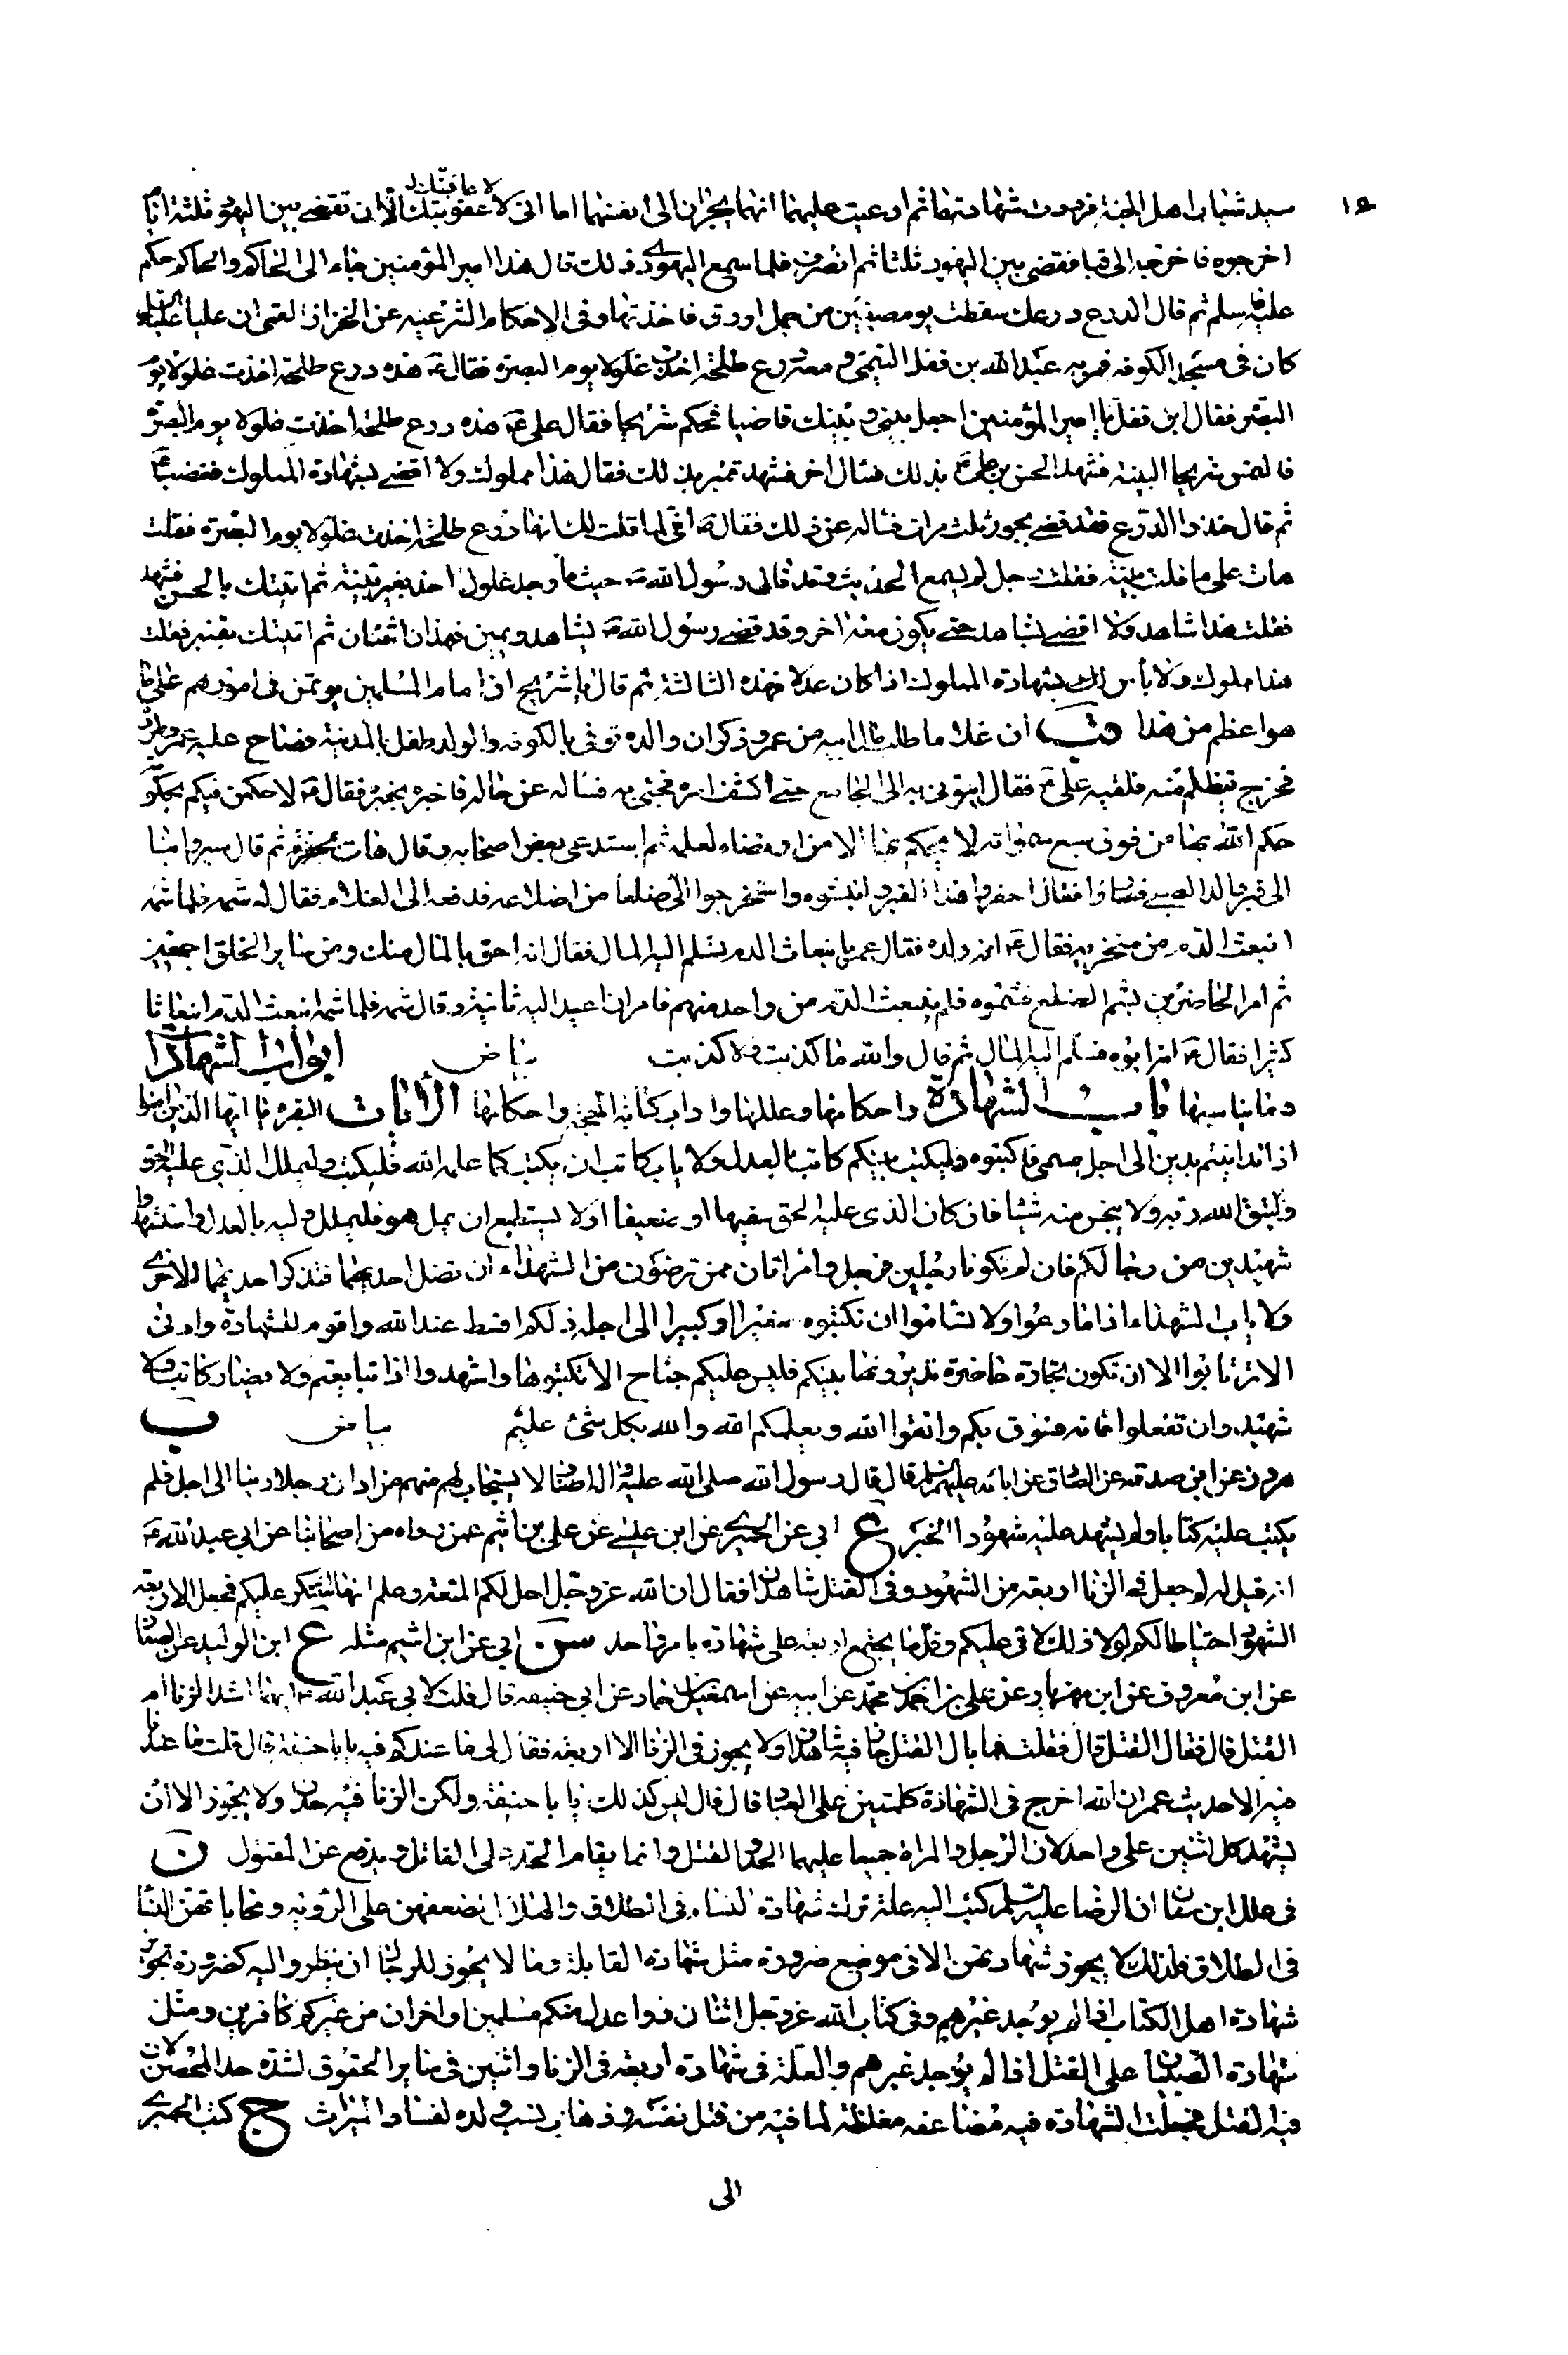 ١٤
لا عاقبتك
سيد شباب اهل الجنة فرددت شهادتهما ثم ادعيت عليهما انهما يجران الى انفسهما اما انى لا عقوبتك الا ان تقضے بين اليهود ثلثة ايام
اخرجوه فاخرجه الى قبا فقضى بين اليهود ثلثا ثم انصرف فلما سمع اليهودے ذلك قال هذا امير المؤمنين جاء الى الحاكم والحاكم حكم
عليه فاسلم ثم قال الدرع درعك سقطت يوم صفين من جمل اورق فاخذتها وفى الاحكام الشرعيه عن الخزاز القمى ان عليا عليه السلم
كان فى مسجد الكوفه فمر به عبد الله بن قفل التيمى ومعه درع طلحة اخذت غلولا يوم البصرة فقال ع هذه درع طلحة اخذت غلولا يوم
البصرة فقال ابن قفل يا امير المؤمنين اجعل بينى وبينك قاضيا فحكم شريحا فقال على ع هذه درع طلحة اخذت غلولا يوم البصرة
فالتمس شريحا البينه فشهد الحسن بن على ع بذلك فسأل اخر فشهد قنبر بذلك فقال هذا مملوك ولا اقضے بشهادة المملوك فغضب ع
ثم قال خذوا الدرع فقد قضے بجور ثلث مرات فسأله عن ذلك فقال ع انى لما قلت لك انها درع طلحة اخذت غلولا يوم البصرة فقلت
هات على ما قلت بينة فقلت رجل لم يسمع الحديث وقد قال رسول الله ص حيث ما وجد غلول اخذ بغير بينة ثم اتيتك بالحسن فشهد
فقلت هذا شاهد ولا اقضے بشاهد حتے يكون معه اخر وقد قضے رسول الله ص بشاهد ويمين فهذان اثنتان ثم اتيتك بقنبر فقلت
هذا مملوك ولا بأس بشهادة المملوك اذا كان عدلا فهذه الثالثة ثم قال يا شريح ان امام المسلمين يوتمن فى امورهم على ما
هو اعظم من هذا قب ان غلاما طلب مال ابيه من عمر وذكر ان والده توفى بالكوفه والولد طفل بالمدينة فصاح عليه عمر وطرده
فخرج يتظلم منه فلقيه على ع فقال ايتونى به الى الجامع حتے اكشف امره فجئ به فسأله عن حاله فاخبره بخبره فقال ع لاحكمن فيكم بحكومة
حكم الله بها من فوق سبع سمواته لا يحكم بها الا من ارتضاه لعلمه ثم استدعى بعض اصحابه وقال هات مجرفة ثم قال سيروا بنا
الى قبر والد الصبے فساروا فقال احفروا هذا القبر وانبشوه واستخرجوا الى ضلعا من اضلاعه فدفعه الى الغلام فقال له شمه فلما شمه
انبعث الدم من منخريه فقال ع انه ولده فقال عمر بانبعاث الدم تسلم اليه المال فقال انه احق بالمال منك ومن ساير الخلق اجمعين
ثم امر الحاضرين بشم الضلع فشموه فلم ينبعث الدم من واحد منهم فامر ان اعيد اليه ثانية وقال شمه فلما شمه انبعث الدم انبعاثا
كثيرا فقال ع انه ابوه فسلم اليه المال ثم قال والله ما كذبت ولا كذبت بياض ابواب الشهادات
وما يناسبها باب الشهادة واحكامها وعللها واداب كتابة الحجة واحكامها الأيات البقره يا ايها الذين امنوا
اذا تداينتم بدين الى اجل مسمى فاكتبوه وليكتب بينكم كاتب بالعدل ولا ياب كاتب ان يكتب كما علمه الله فليكتب وليملل الذى عليه الحق
وليتق الله ربه ولا يبخس منه شيئا فان كان الذى عليه الحق سفيها او ضعيفا او لا يستطيع ان يمل هو فليملل وليه بالعدل واستشهدوا
شهيدين من رجالكم فان لم يكونا رجلين فرجل وامراتان ممن ترضون من الشهداء ان تضل احديهما فتذكر احديهما الاخرے
ولا ياب الشهداء اذا ما دعوا ولا تسأموا ان تكتبوه صغيرا او كبيرا الى اجله ذلكم اقسط عند الله واقوم للشهادة وادنى
الا ترتابوا الا ان تكون تجارة حاضرة تديرونها بينكم فليس عليكم جناح الا تكتبوها واشهدوا اذا تبايعتم ولا يضار كاتب ولا
شهيد وان تفعلوا فانه فسوق بكم واتقوا الله ويعلمكم الله والله بكل شئ عليم بياض ب
هرون عن ابن صدقه عن الصادق عن ابائه عليهم السلم قال قال رسول الله صلى الله عليه واله اصناف لا يستجاب لهم منهم من ادان رجلا دينا الى اجل فلم
يكتب عليه كتابا ولم يشهد عليه شهودا الخبر ع ابي عن الحميرے عن ابن عيسے عن على بن اشيم عمن رواه من اصحابنا عن ابي عبد الله ع
انه قيل له لم جعل فى الزنا اربعة من الشهود وفى القتل شاهدان فقال ان الله عز وجل احل لكم المتعه وعلم انها ستنكر عليكم فجعل الاربعة
الشهود احتياطا لكم لولا ذلك لاتى عليكم وقل ما يجتمع اربعة على شهادة بامر واحد سن ابي عن ابن اشيم مثله ع ابن الوليد عن الصفار
عن ابن معروف عن ابن مهزيار عن على بن احمد بن محمد عن ابيه عن اسمعيل بن حماد عن ابى حنيفه قال قلت لابي عبد الله ع ايهما اشد الزنا ام
القتل قال فقال القتل قال فقلت فما بال القتل جاز فيه شاهدان ولا يجوز فى الزنا الا اربعة فقال لى ما عندكم فيه يا با حنيفة قال قلت ما عندنا
فيه الا حديث عمر ان الله اخرج فى الشهادة كلمتين على العباد قال قال ليس كذلك يا با حنيفة ولكن الزنا فيه حدان ولا يجوز الا ان
يشهد كل اثنين على واحد لان الرجل والمراة جميعا عليهما الحد والقتل وانما يقام الحد على القاتل ويدفع عن المقتول ن
فى علل ابن سنان ان الرضا عليه السلم كتب اليه علة ترك شهادة النساء فى الطلاق والهلال لضعفهن على الرؤيه ومحاباتهن النساء
فى الطلاق فلذلك لا يجوز شهادتهن الا فى موضع ضرورة مثل شهادة القابلة وما لا يجوز للرجال ان ينظروا اليه كضرورة تجويز
شهادة اهل الكتاب اذا لم يوجد غيرهم وفى كتاب الله عز وجل اثنان ذوا عدل منكم مسلمين او اخران من غيركم كافرين ومثل
شهادة الصبيان على القتل اذا لم يوجد غيرهم والعلة فى شهادة اربعة فى الزنا واثنين فى ساير الحقوق لشدة حد المحصن لان
فيه القتل فجعلت الشهادة فيه مضاعفه مغلظة لما فيه من قتل نفسه وذهاب نسب ولده لفساد الميراث ج كتب الحميرے
الى